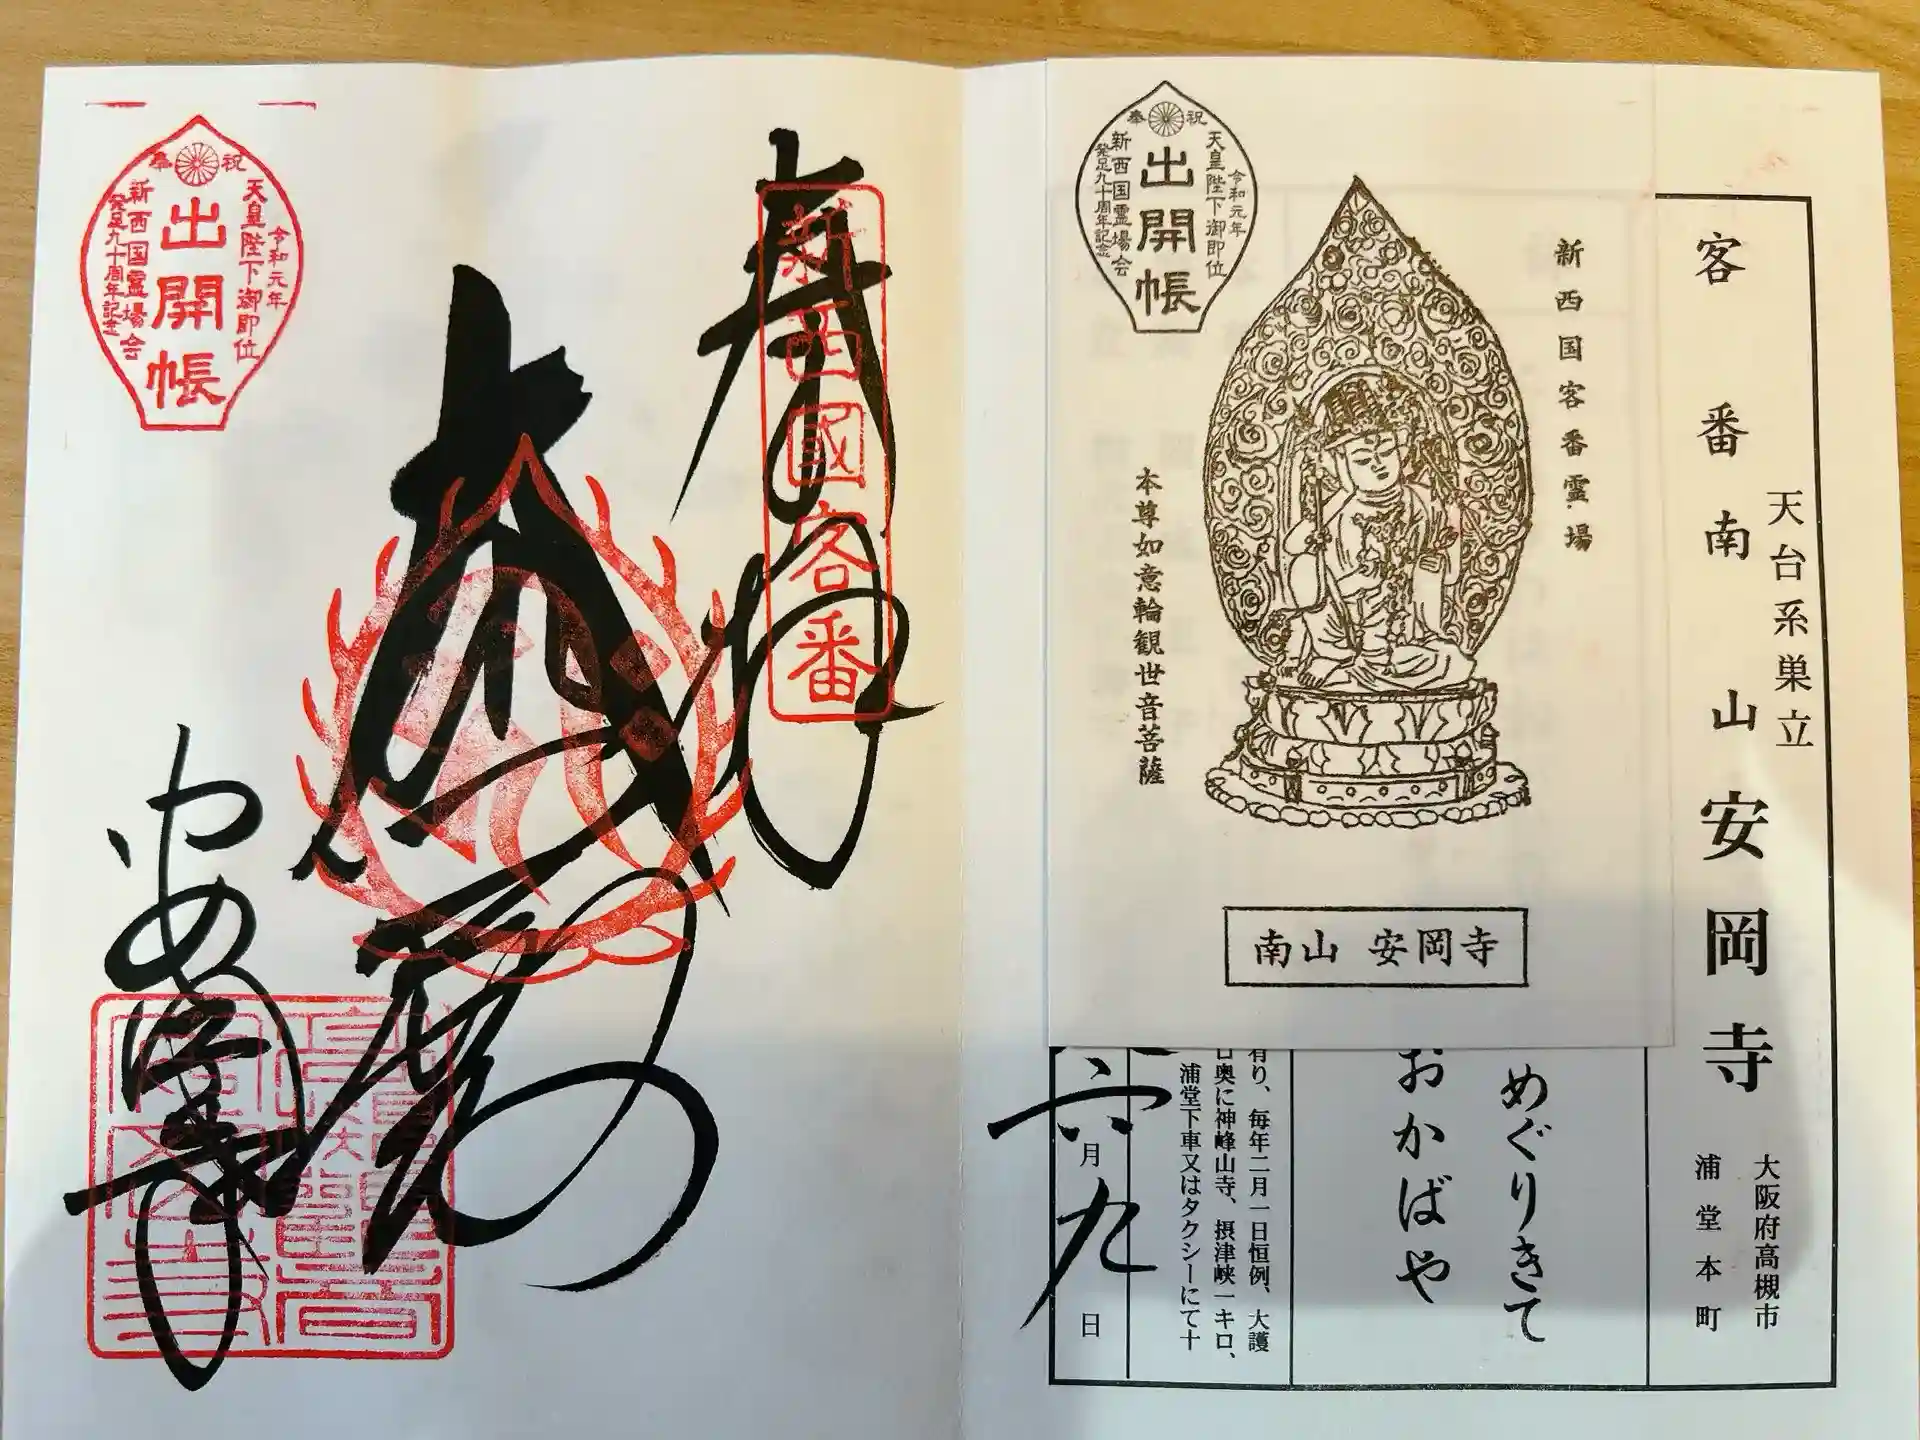 客番南山安岡寺
天台系巣立
大阪府高槻市
浦堂本町
めぐりきて
おかばや
有り、毎年二月一日恒例、大護
口奥に神峰山寺、摂津峡一キロ、
浦堂下車又はタクシーにて十
六月九日
新西国客番霊場
本尊如意輪観世音菩薩
南山 安岡寺
奉祝
令和元年
天皇陛下御即位
出開帳
新西国霊場会
発足九十周年記念
奉拝
新西國客番
大悲
安岡寺
奉祝
令和元年
天皇陛下御即位
出開帳
新西国霊場会
発足九十周年記念